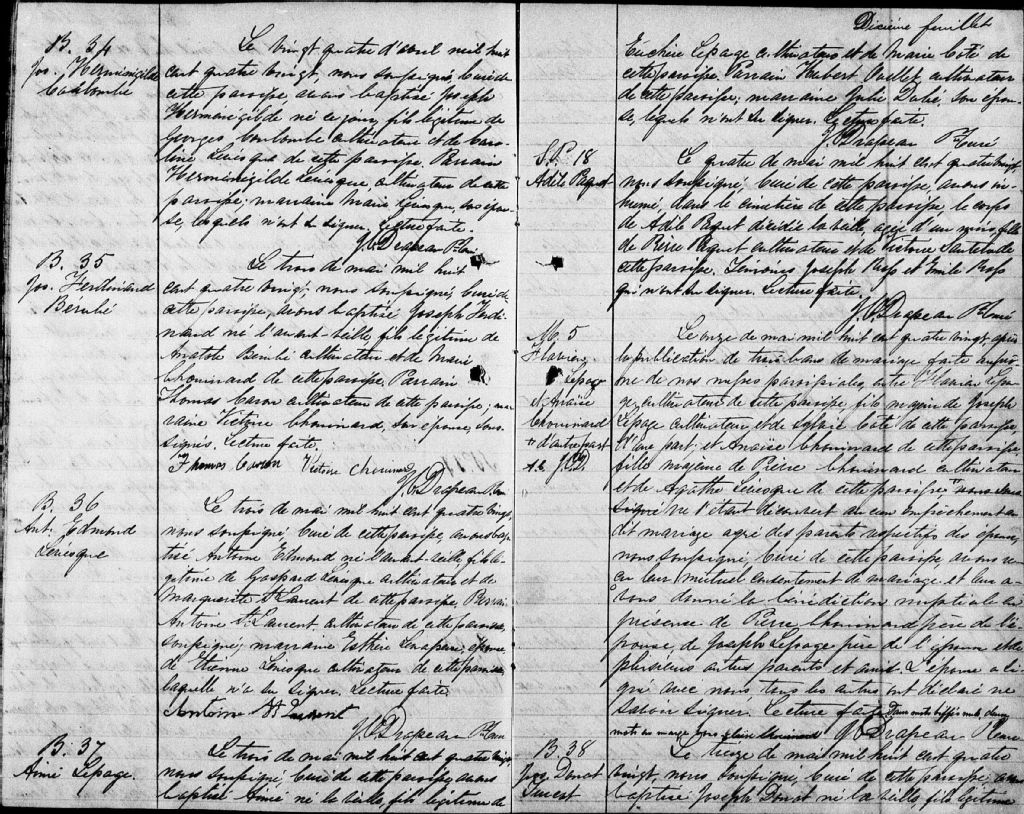 B. 34
Jos. Herménégilde
Coulombe
Le vingt quatre d'avril mil huit
cent quatre vingt, nous soussigné, Curé de
cette paroisse, avons baptisé Joseph
Herménégilde né ce jour, fils légitime de
Georges Coulombe cultivateur et de Caro-
line Levesque de cette paroisse. Parrain
Herménégilde Levesque, cultivateur de cette
paroisse; marraine Marie son épou-
se, lesquels n'ont su signer. Lecture faite.
J.O. Drapeau Ptre
B. 35
Jos. Ferdinand
Bérubé
Le trois de mai mil huit
cent quatre vingt, nous soussigné, Curé de
cette paroisse, avons baptisé Joseph Ferdi-
nand né l'avant-veille, fils légitime de
Anatole Bérubé cultivateur et de Marie
Chouinard de cette paroisse, Parrain
Thomas Caron cultivateur de cette paroisse; mar-
raine Victoire Chouinard, son épouse, sous-
signés. Lecture faite.
Thomas Caron Victoire Chouinard
J.O. Drapeau Ptre
B. 36
Ant. Edmond
Levesque
Le trois de mai mil huit cent quatre vingt,
nous soussigné Curé de cette paroisse, avons bap-
tisé Antoine Edmond né l'avant-veille fils lé-
gitime de Gaspard Levesque cultivateur et de
Marguerite St Laurent de cette paroisse, Parrain
Antoine St. Laurent cultivateur de cette paroisse,
soussigné; marraine Esthère épouse
de Etienne Levesque cultivateur de cette paroisse
laquelle n'a su signer. Lecture faite
Antoine St Laurent
J.O. Drapeau Ptre
B. 37
Aimé Lepage.
Le trois de mai mil huit cent quatre vingt
nous soussigné Curé de cette paroisse avons
baptisé Aimé né la veille, fils légitime de
Dixième feuillet
Euchère Lepage cultivateur et de Marie Coté de
cette paroisse, Parrain Hubert Ouellet cultivateur
de cette paroisse; marraine Julie Dubé, son épou-
se, lesquels n'ont su signer. Lecture faite.
J.O. Drapeau Ptre Curé
S.P. 18
Adèle Paquet
Le quatre de mai mil huit cent quatre vingt,
nous soussigné, Curé de cette paroisse, avons in-
humé, dans le cimetière de cette paroisse, le corps
de Adèle Paquet décédée la veille, agée d'un mois, fille
de Pierre Paquet cultivateur et de Victoire de
cette paroisse, Témoins Joseph Ross et Emile Ross
qui n'ont su signer. Lecture faite
J.O. Drapeau Ptre Curé
M. 5
Flavien
Lepage
et Anaïse
Chouinard
" d'autre part
J.O.D.
Le onze de mai mil huit cent quatre vingt, après
la publication de trois bans de mariage faite au prô-
ne de nos messes paroissiales, entre Flavien Lepa-
ge, cultivateur de cette paroisse fils majeur de Joseph
Lepage cultivateur, et de Sylvie Côté de cette paroisse,
d'une part; et Anaïse Chouinard de cette paroisse
fille majeure de Pierre Chouinard cultivateur
et de Agathe Levesque de cette paroisse " nous sous-
signé ne s'étant découvert aucun empêchement au
dit mariage agré des parents respectifs des époux,
nous soussigné Curé de cette paroisse avons re-
çu leur mutuel consentement de mariage et leur a-
vons donné la bénédiction nuptiale en
présence de Pierre Chouinard père de l'é-
pouse, de Joseph Lepage père de l'époux et de
plusieurs autres parents et amis. L'épouse a si-
gné avec nous tous les autres ont déclaré ne
savoir signer. Lecture faite. Deux mots biffés nuls, deux
mots en marge bons Chouinard J.O. Drapeau Ptre Curé
B. 38
Jos. Donat
Le treize de mai mil huit cent quatre
vingt, nous soussigné, Curé de cette paroisse avons
baptisé Joseph Donat né la veille, fils légitime